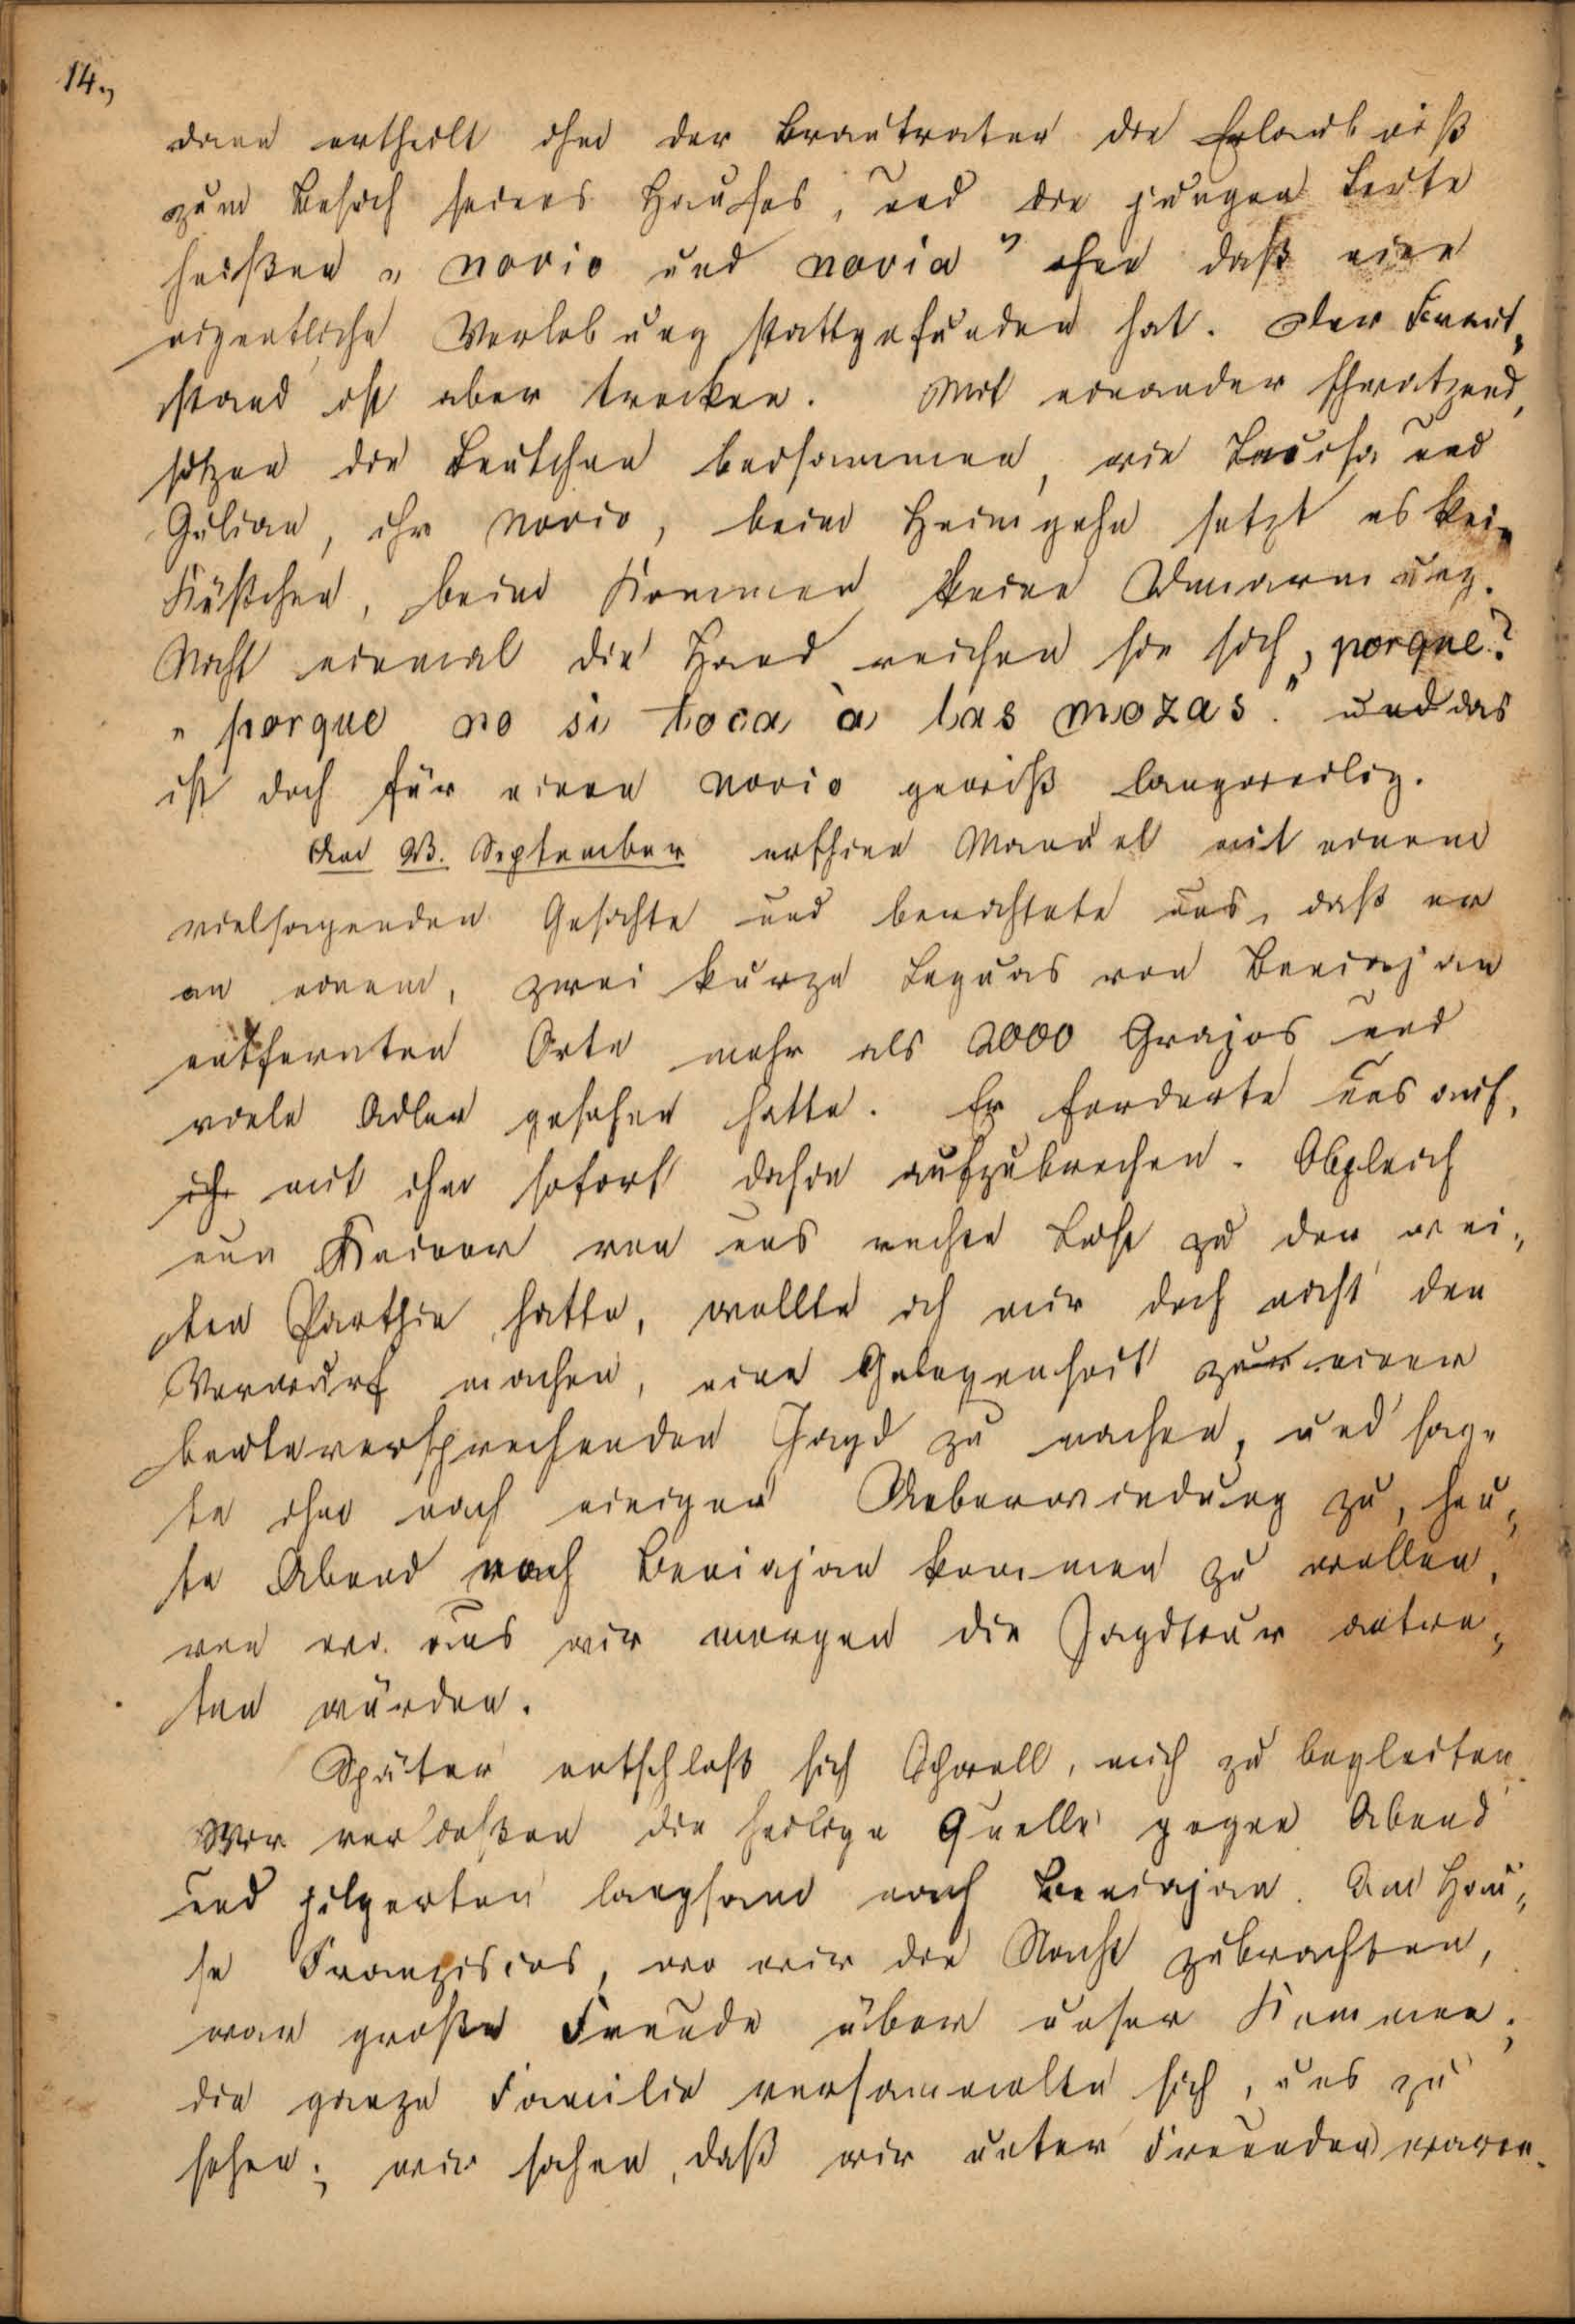 14.,
dann ertheilt ihm der Brautvater die Erlaubniß
zum Besuch seines Hauses, und die jungen Leute
heißen „novio und novia" ohne daß eine
eigentliche Verlobung stattgefunden hat. Der Braut„
stand ist aber trocken. Mit einander schwatzend,
sitzen die Leutchen beisammen, wie Luisa und
Gulian, ihr novio, beim Heimgehn setzt es kein
Küßchen, beim Kommen keine Umarmung.
Nicht einmal die Hand reichen sie sich, porque?
„porque no si toca à las mozas." und das
ist doch für einen novio gewiß langweilig.
Den 23. September erschien Manuel mit einem
vielsagenden Gesichte und berichtete uns, daß er
an einem, zwei kurze Leguas von Beniajan
entfernten Orte mehr als 2000 Grajos und
viele Adler gesehen hatte. Er forderte uns auf,
ihr mit ihm sofort dahin aufzubrechen. Obgleich
nun Keiner von uns rechte Lust zu der wei„
ten Parthie hatte, wollte ich mir doch nicht den
Vorwurf machen, eine Gelegenheit zur einer
beuteversprechenden Jagd zu machen, und sag„
te ihm nach einiger Ueberwindung zu, heu„
te Abend nach Beniajan kommen zu wollen,
von wo aus wir morgen die Jagdtour antre„
ten würden.
Später entschloß sich Schnell, mich zu begleiten.
Wir verließen die heilige Quelle gegen Abend
und pilgerten langsam nach Beniajan. Im Hau„
se Franziscos, wo wir die Nacht zubrachten,
war große Freude über unser Kommen;
die ganze Familie versammelte sich, uns zu
sehen; wir sahen, daß wir unter Freunden waren.